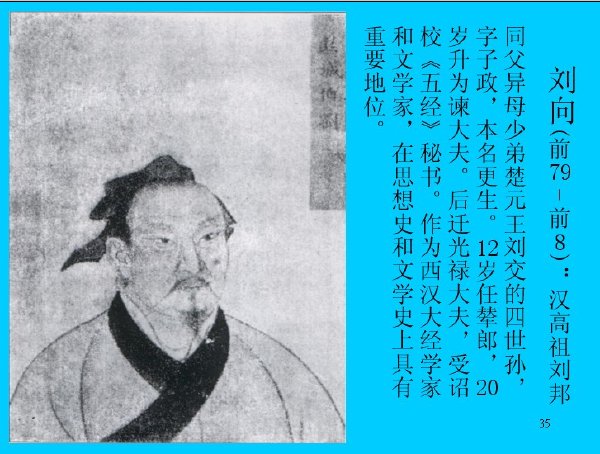 刘向(前79－前8)：汉高祖刘邦
同父异母少弟楚元王刘交的四世孙，
字子政，本名更生。12岁任辇郎，20
岁升为谏大夫。后迁光禄大夫，受诏
校《五经》秘书。作为西汉大经学家
和文学家，在思想史和文学史上具有
重要地位。
35